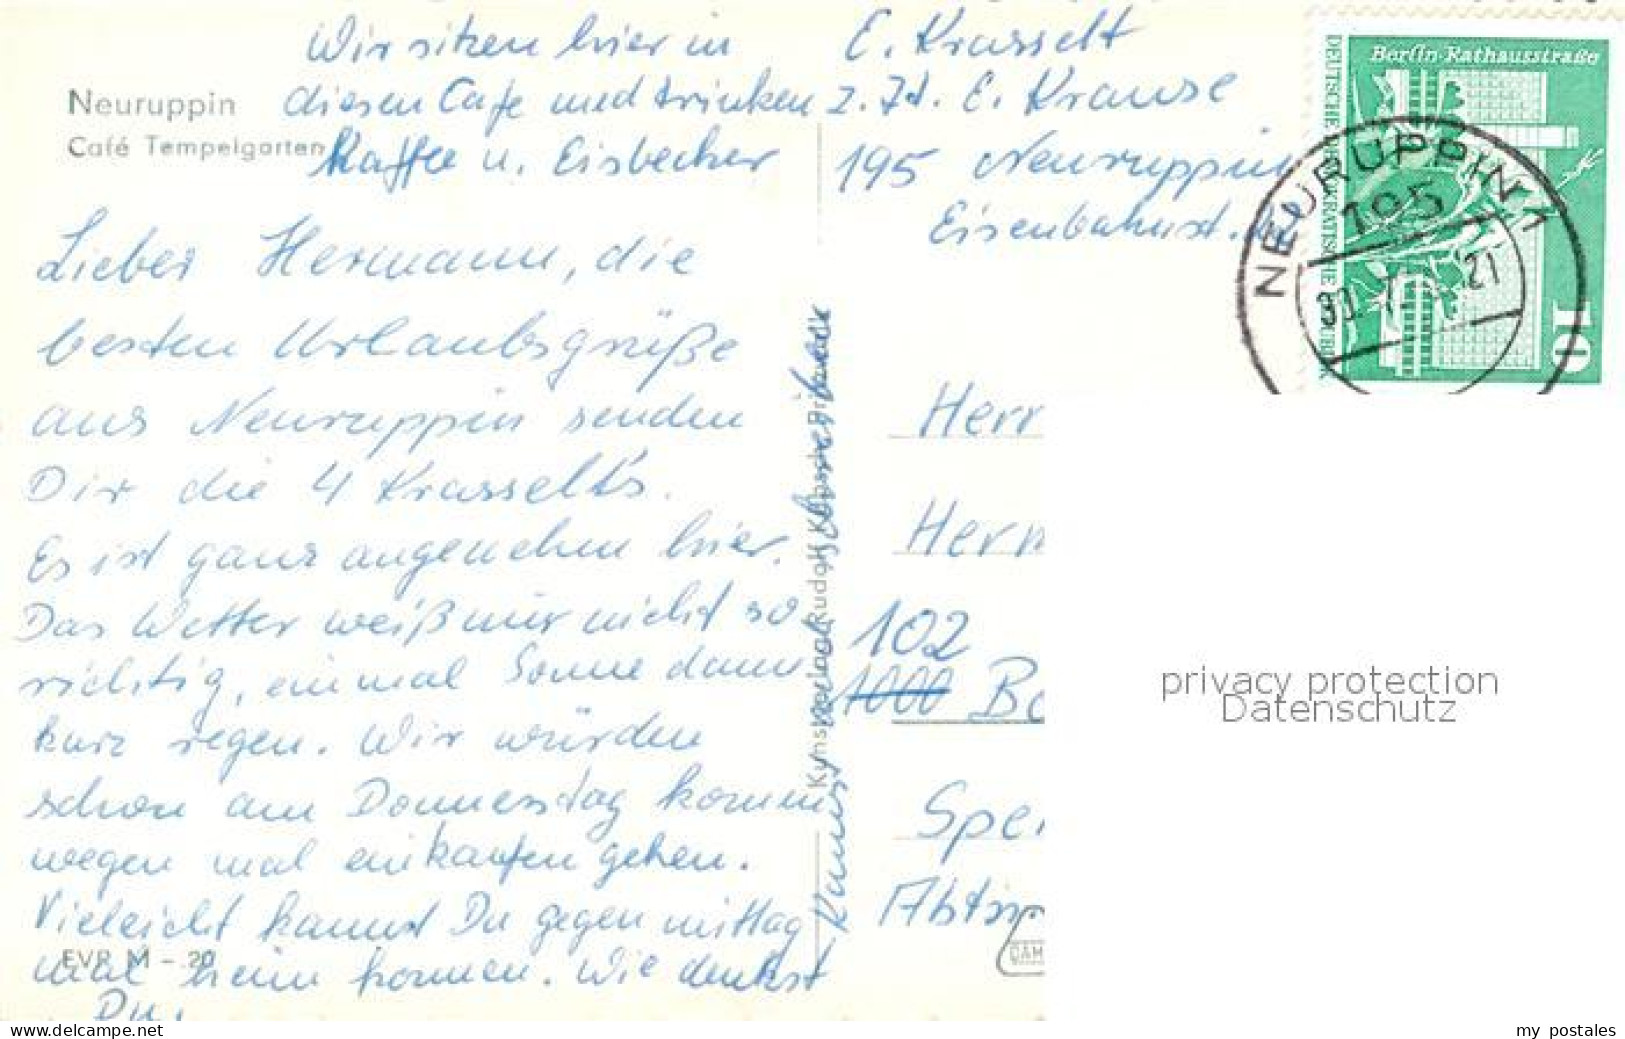 Wir sitzen hier in
diesen Cafe und trinken
Kaffee u. Eisbecher
Neuruppin
Café Tempelgarten
Lieber Hermann, die
besten Urlaubsgrüße
aus Neuruppin senden
Dir die 4 Krasselt's.
Es ist ganz angenehm hier.
Das Wetter weiß nur nicht so
richtig, einmal Sonne dann
kurz regen. Wir würden
schon am Donnerstag kommen
wegen mal einkaufen gehen.
Vieleicht kannst Du gegen mittag
mal heim kommen. Wie denkst
Du,
EVP M – 20
Kunstverlag Rudolf
Kannst
E. Krasselt
z. Zt. E. Krause
195 Neuruppin
Eisenbahnst.
Berlin-Rathausstraße
DEUTSCHE DEMOKRATISCHE REPUBLIK
10
NEURUPPIN 1
195
30. 7. 21
Herr
Herm
102
1000 Be
Spei
Abtn
privacy protection
Datenschutz
www.delcampe.net
my postales